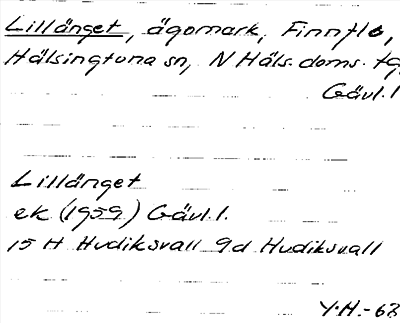 Lillänget, ägomark, Finnflo,
Hälsingtuna sn, N Häls. doms. tg,
Gävl.l
Lillänget
ek (1959) Gävl.l.
15 H Hudiksvall 9d Hudiksvall
Y.H.-63